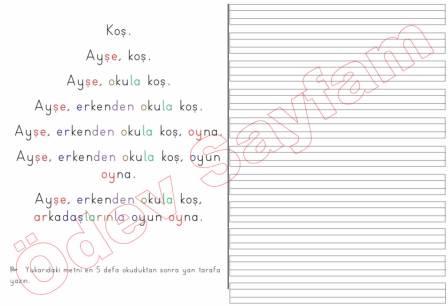 Koş.
Ayşe, koş.
Ayşe, okula koş.
Ayşe, erkenden okula koş.
Ayşe, erkenden okula koş, oyna.
Ayşe, erkenden okula koş, oyun
oyna.
Ayşe, erkenden okula koş,
arkadaşlarınla oyun oyna.
Yukarıdaki metni en 5 defa okuduktan sonra yan tarafa
yazın.
Ödev Sayfam